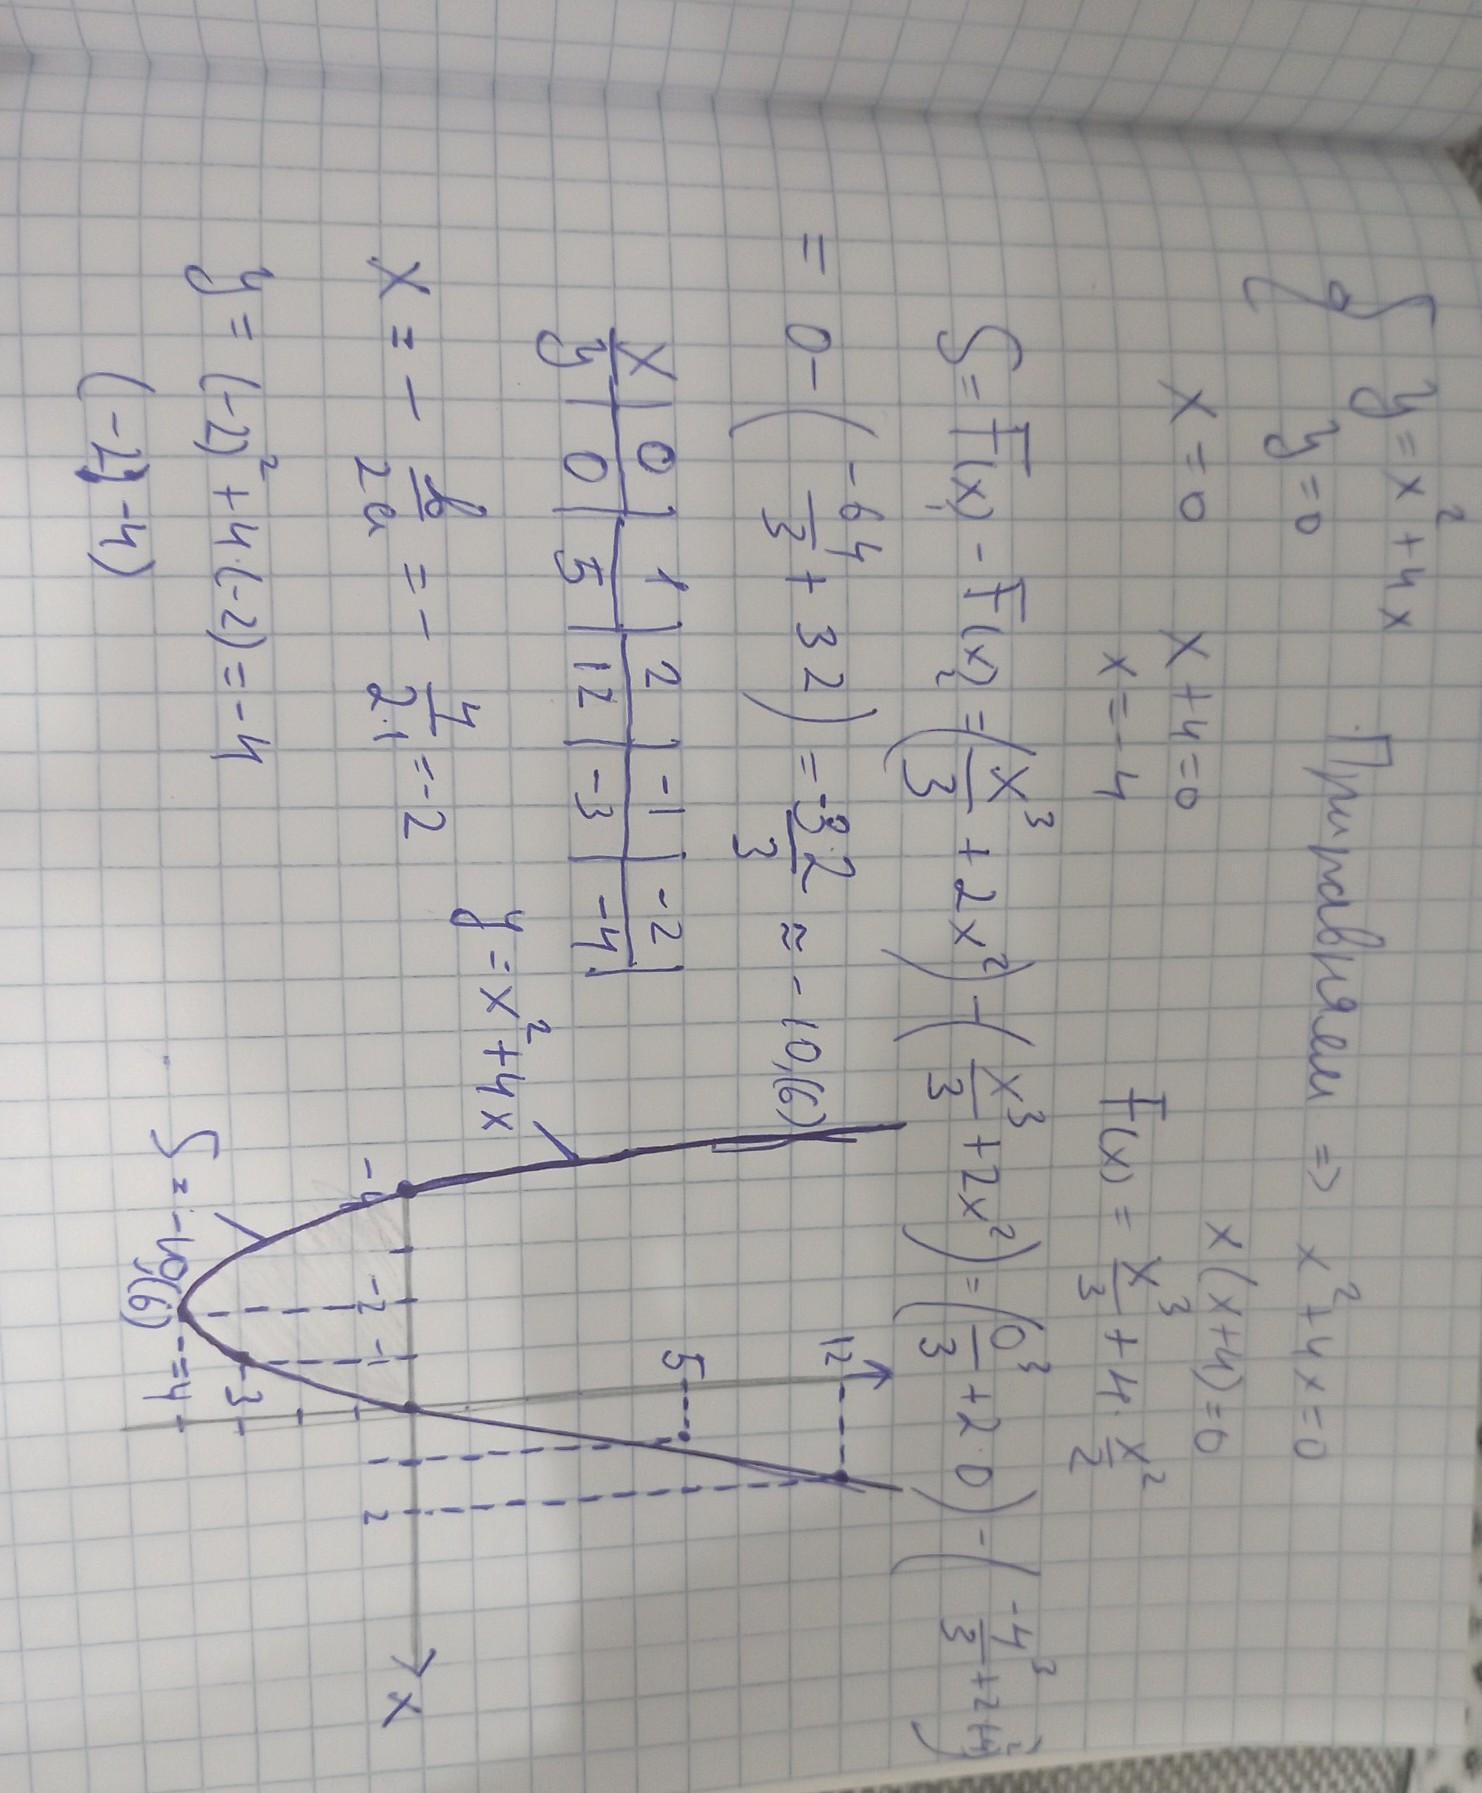 { y = x² + 4x
y = 0
Приравняем => x² + 4x = 0
x(x+4) = 0
x = 0 x + 4 = 0
x = -4
F(x) = x³/3 + 4·x²/2
S = F(x₁) - F(x₂) = (x³/3 + 2x²) - (x³/3 + 2x²) = (0³/3 + 2·0) - (-4³/3 + 2·4²)
= 0 - (-64/3 + 32) = -32/3 ≈ -10,(6)
x | 0 | 1 | 2 | -1 | -2 |
y | 0 | 5 | 12 | -3 | -4 |
x = - b/2a = - 4/2·1 = -2
y = (-2)² + 4·(-2) = -4
(-2; -4)
y = x² + 4x
12
5
-4 -2 -1 2 x
-3
-4
S = -10,(6)